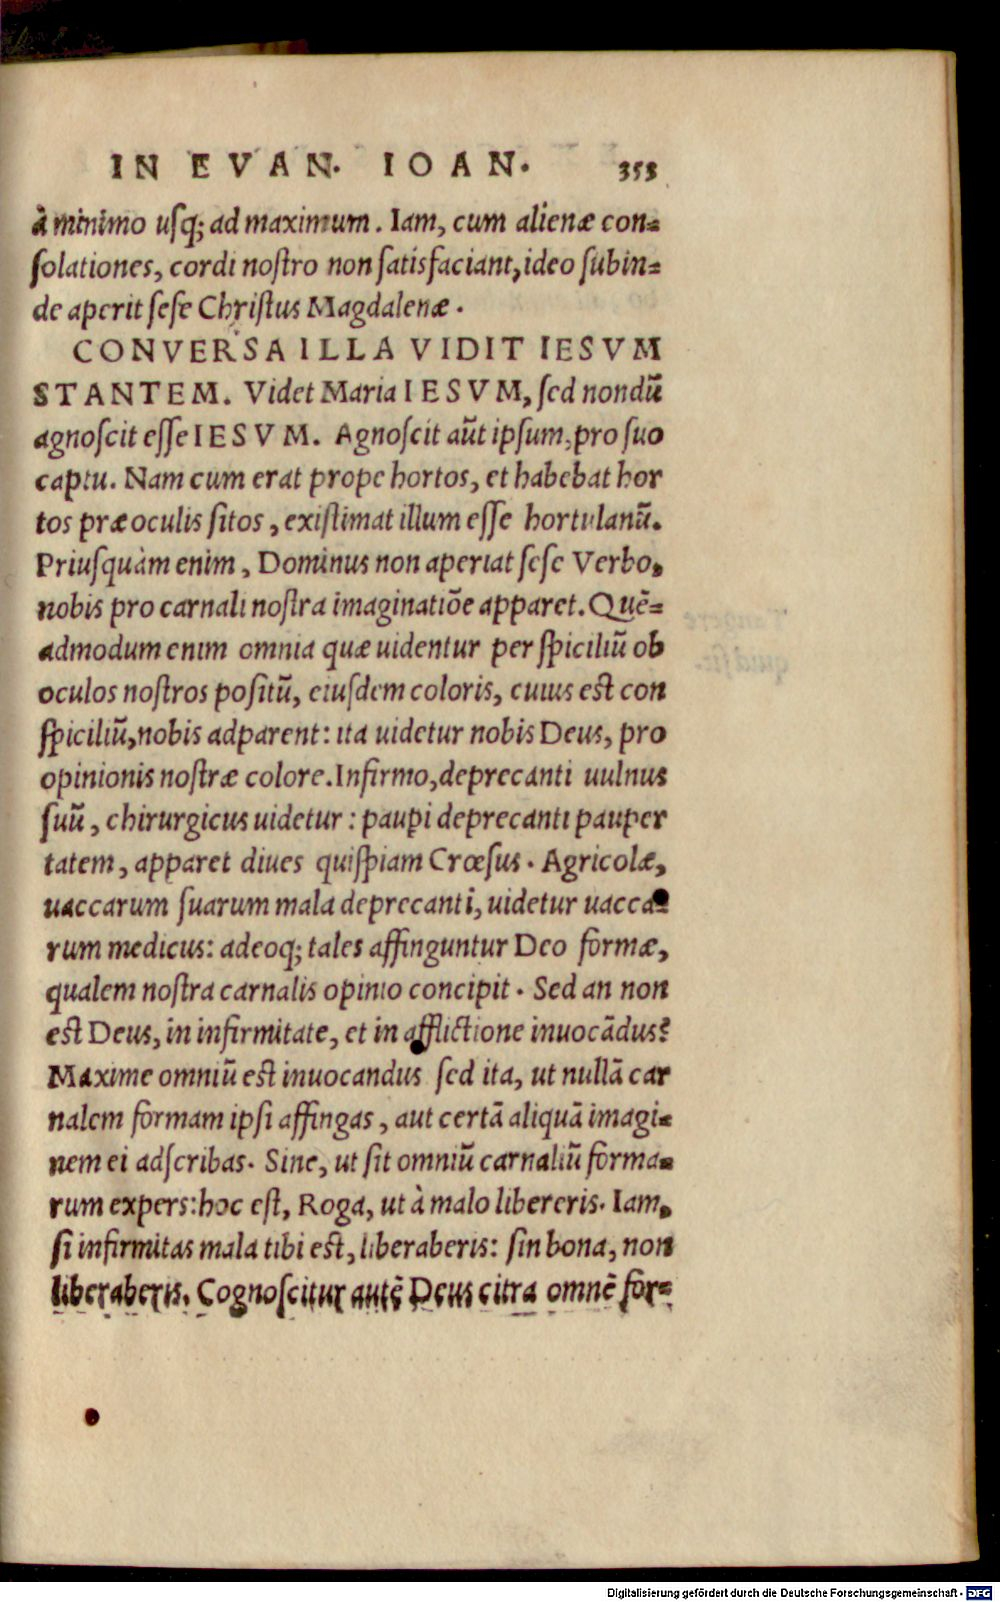 IN EVAN. IOAN. 353
à minimo uſq; ad maximum. Iam, cum alienæ con-
ſolationes, cordi noſtro non ſatisfaciant, ideo ſubin-
de aperit ſeſe Chriſtus Magdalenæ.
CONVERSA ILLA VIDIT IESVM
STANTEM. Videt Maria IESVM, ſed nondū
agnoſcit eſſe IESVM. Agnoſcit aūt ipſum, pro ſuo
captu. Nam cum erat prope hortos, et habebat hor
tos præ oculis ſitos, exiſtimat illum eſſe hortulanū.
Priuſquàm enim, Dominus non aperiat ſeſe Verbo,
nobis pro carnali noſtra imaginatiōe apparet. Quē-
admodum enim omnia quæ uidentur per ſpiciliū ob
oculos noſtros poſitū, eiuſdem coloris, cuius eſt con
ſpiciliū, nobis adparent: ita uidetur nobis Deus, pro
opinionis noſtræ colore. Infirmo, deprecanti uulnus
ſuū, chirurgicus uidetur: pauꝑi deprecanti pauper
tatem, apparet diues quiſpiam Crœſus. Agricolæ,
uaccarum ſuarum mala deprecanti, uidetur uacca-
rum medicus: adeoq; tales affinguntur Deo formæ,
qualem noſtra carnalis opinio concipit. Sed an non
eſt Deus, in infirmitate, et in afflictione inuocādus?
Maxime omniū eſt inuocandus ſed ita, ut nullā car
nalem formam ipſi affingas, aut certā aliquā imagi-
nem ei adſcribas. Sine, ut ſit omniū carnaliū forma-
rum expers: hoc eſt, Roga, ut à malo libereris. Iam,
ſi infirmitas mala tibi eſt, liberaberis: ſin bona, non
liberaberis. Cognoſcitur autē Deus citra omnē for-
Digitalisierung gefördert durch die Deutsche Forschungsgemeinschaft - DFG